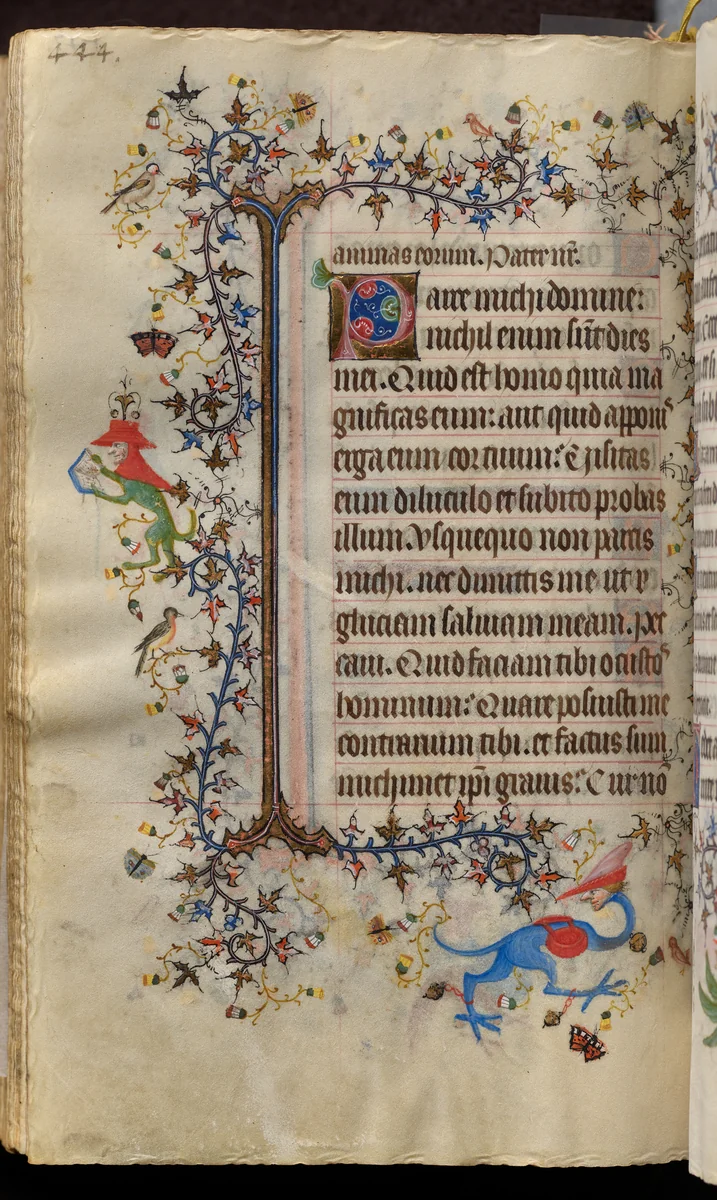 444.
animas eorum. Pater nr̄.
Parce michi domine:
nichil enim sūt dies
mei. Quid est homo quia ma
gnificas eum: aut quid apponis
erga eum cor tuum: Visitas
eum diluculo et subito probas
illum. Usquequo non parcis
michi. nec dimittis me ut
gluciam saliuam meam. Pec
caui. Quid faciam tibi o custos
hominum: Quare posuisti me
contrarium tibi. et factus sum
michimet ip̄i grauis: Cur nō